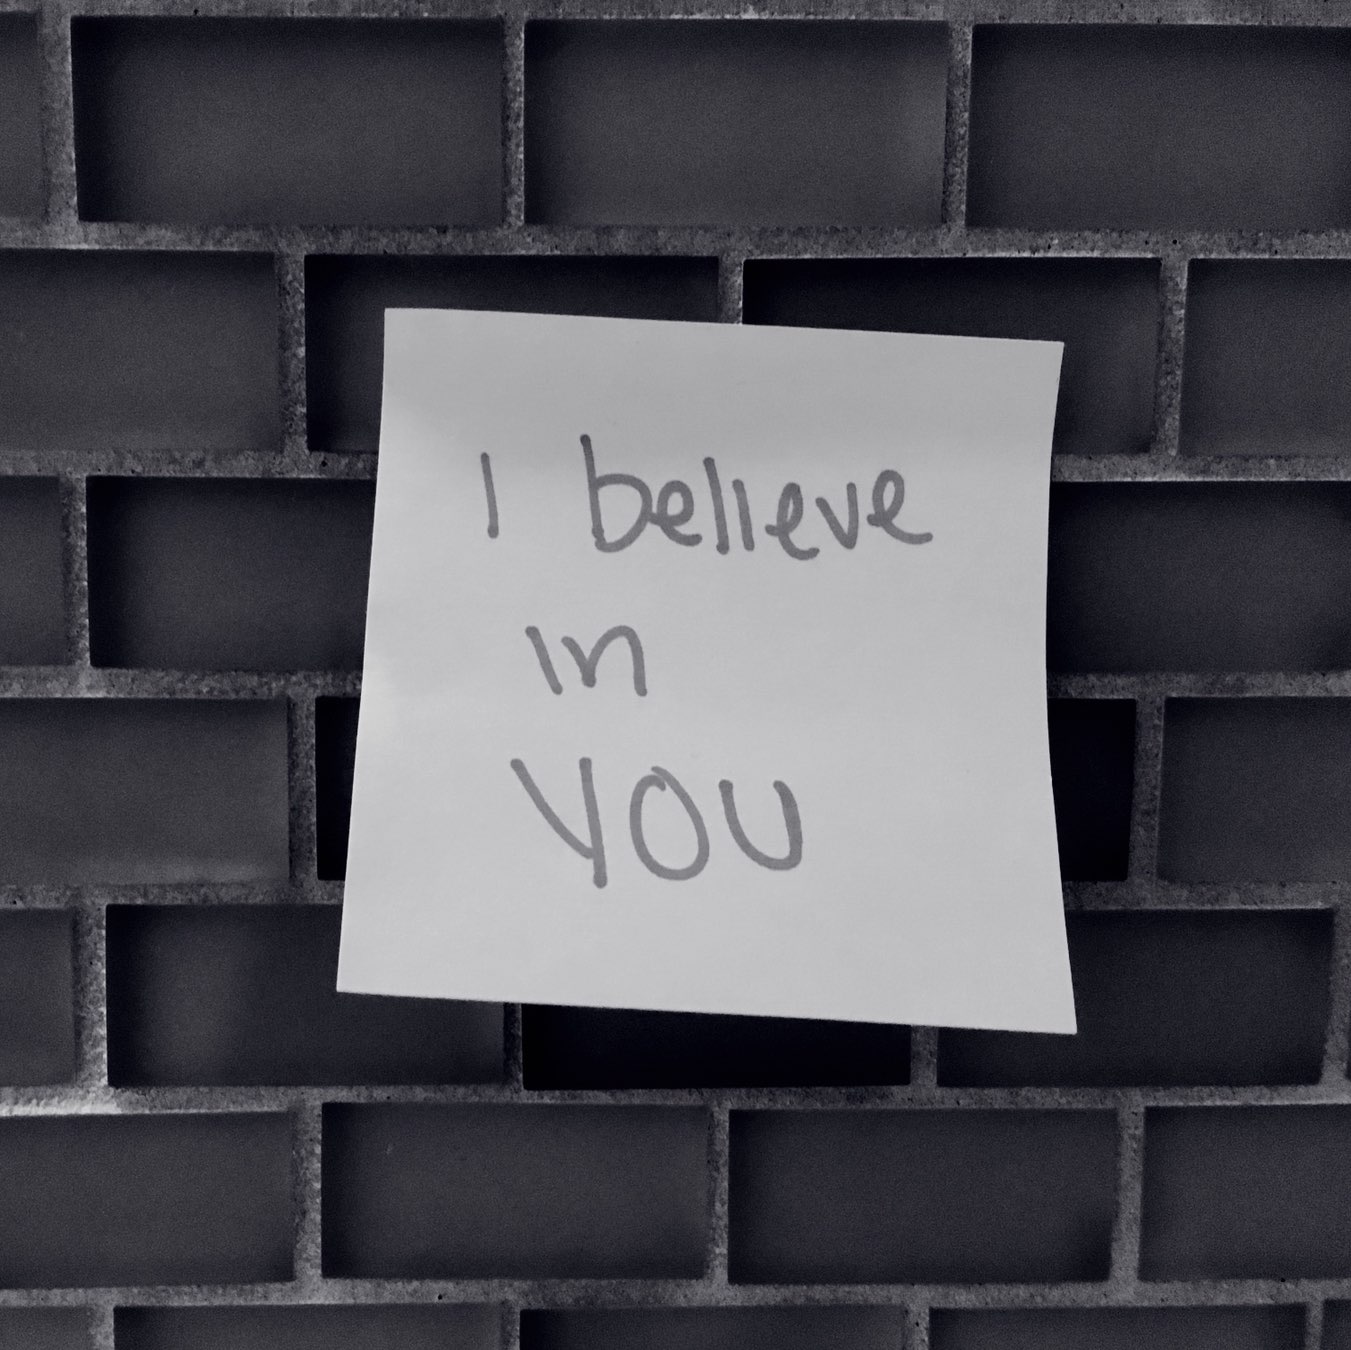 I believe
in
YOU